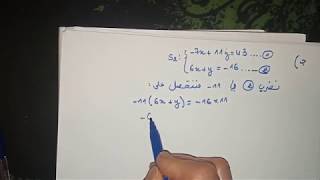 (ج
S₂: { -7x + 11y = 43 ..... ①
6x + y = -16 ..... ②
نضرب ② في -11 فنتحصل على:
-11(6x + y) = -16 × 11
-6